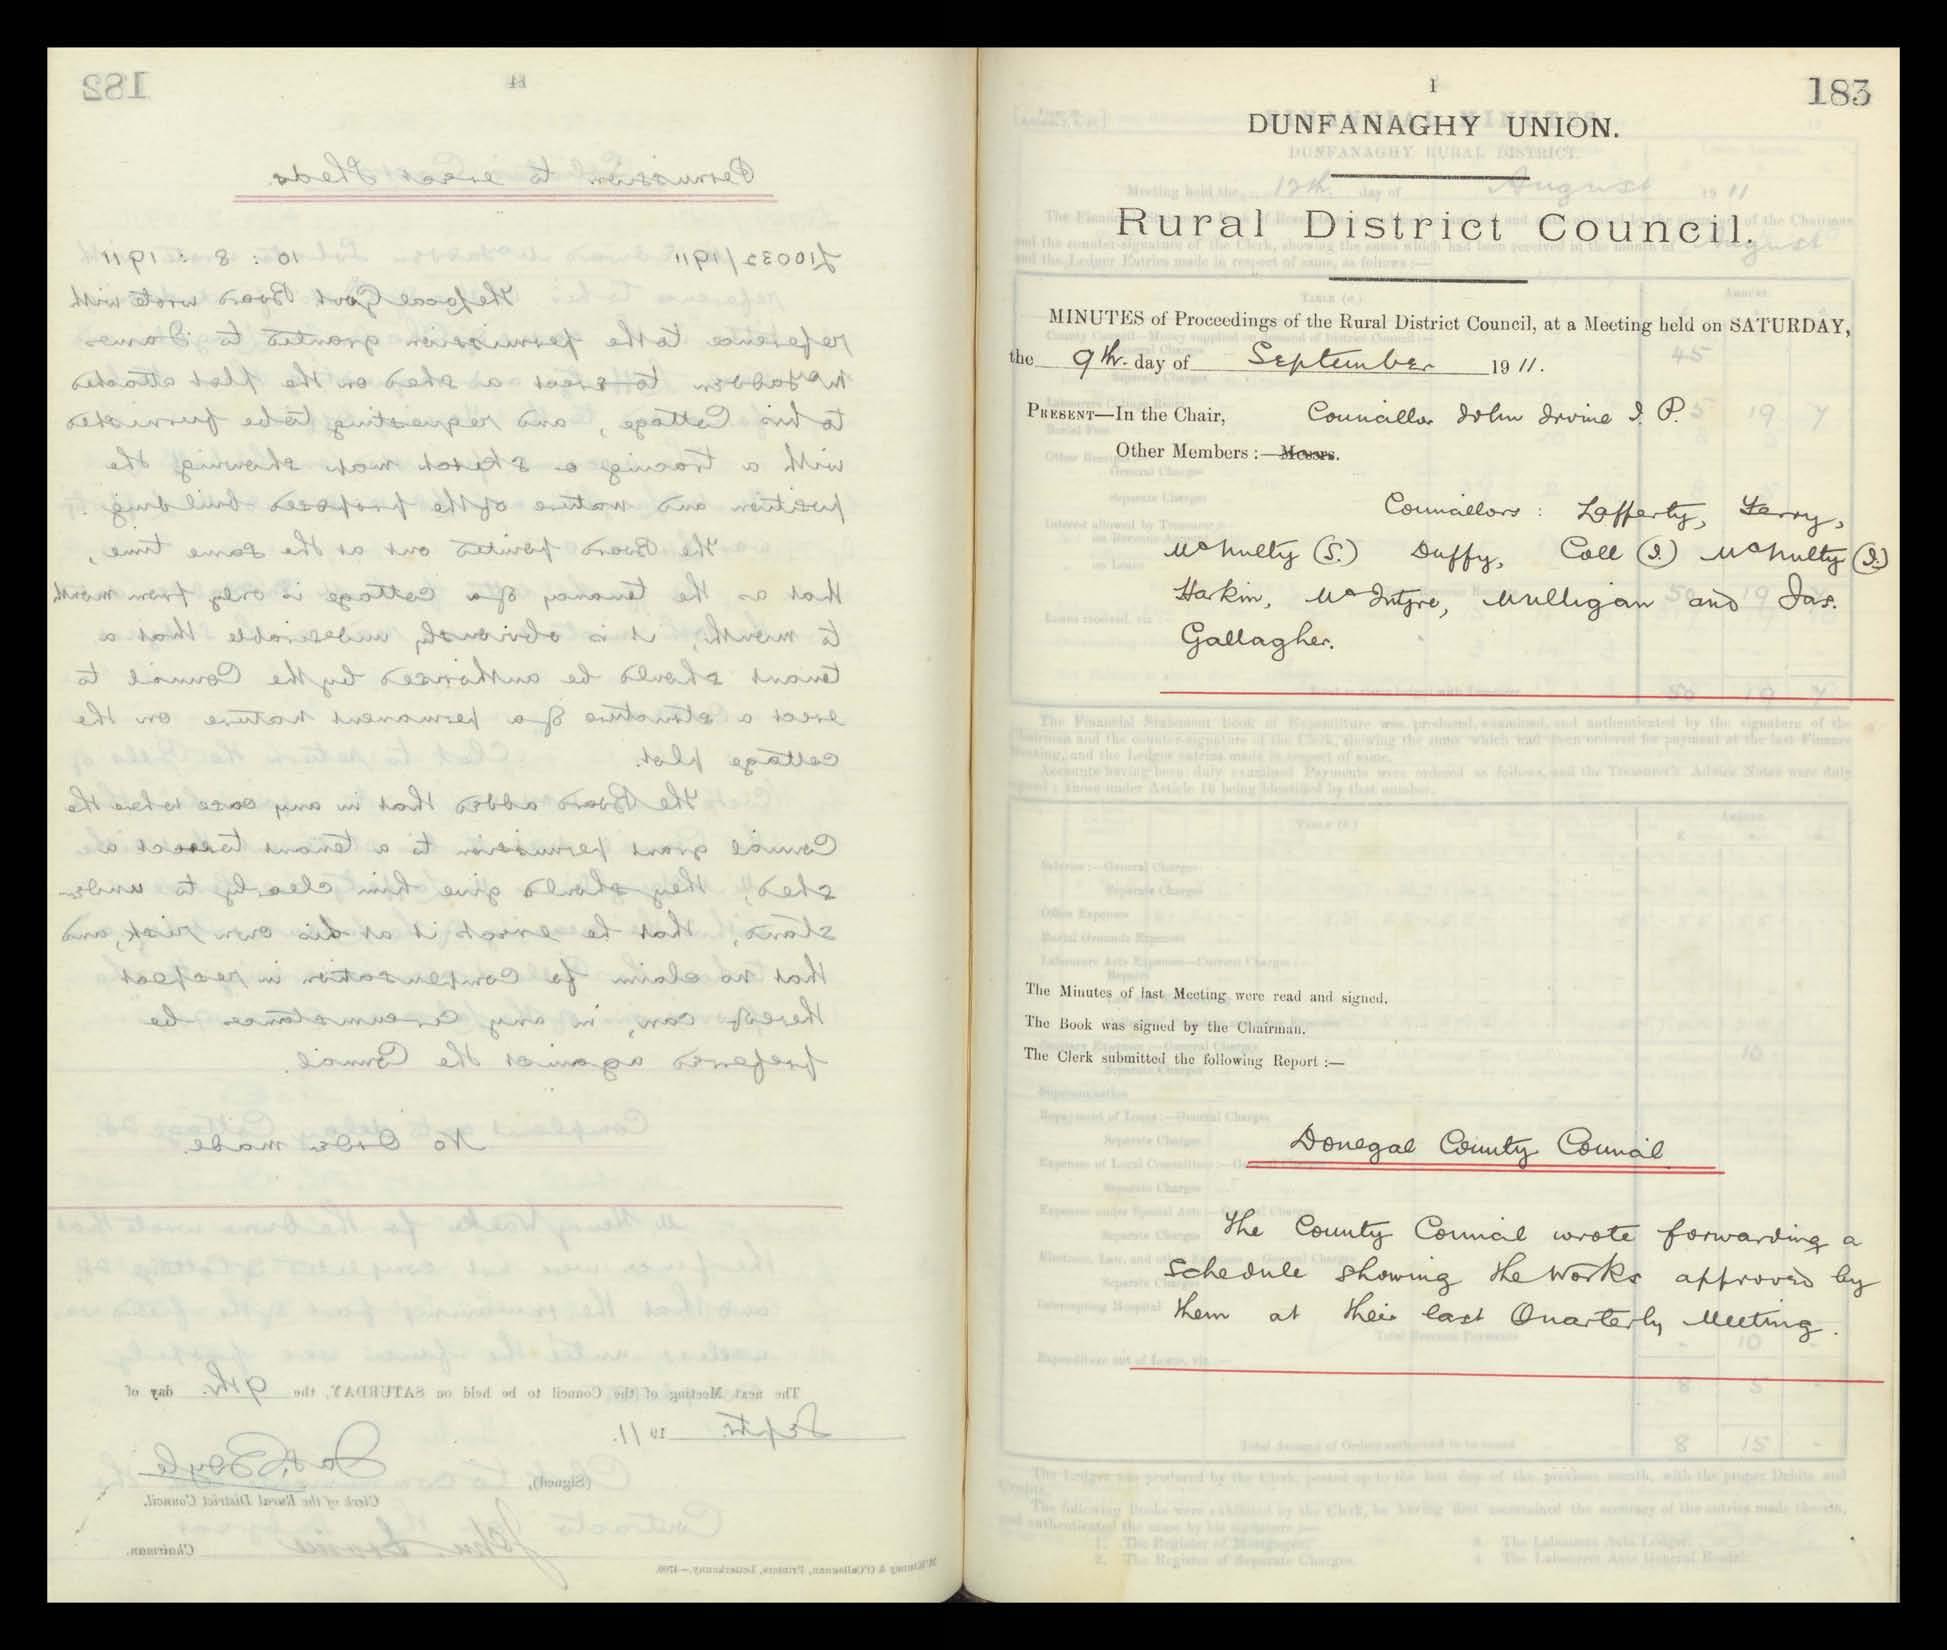 182
14
Permission to erect Sheds.
L10032/1911 10 : 8 : 1911
The Local Govt Board wrote with
reference to the permission granted to James
McFadden to erect a shed on the plot attached
to his Cottage, and requesting to be furnished
with a tracing or sketch map showing the
position and nature of the proposed building.
The Board pointed out at the same time,
that as the tenancy of a cottage is only from month
to month, it is obviously undesirable that a
tenant should be authorised by the Council to
erect a structure of a permanent nature on the
cottage plot.
The Board added that in any case where the
Council grant permission to a tenant to erect a
shed, they should give him clearly to under-
stand, that he erects it at his own risk, and
that no claim for compensation in respect
thereof can, in any circumstances be
preferred against the Council.
No Order made.
The next Meeting of the Council to be held on SATURDAY, the 9th. day of
Septr. 19 11.
(Signed),
Clerk of the Rural District Council.
John Irvine Chairman.
183
1
DUNFANAGHY UNION.
Rural District Council.
MINUTES of Proceedings of the Rural District Council, at a Meeting held on SATURDAY,
the 9th. day of September 19 11.
PRESENT—In the Chair, Councillor John Irvine J. P.
Other Members :—Messrs.
Councillors : Lafferty, Ferry,
McNulty (S.) Duffy, Coll (J.) McNulty (J.)
Harkin, McIntyre, Mulligan and Jas.
Gallagher.
The Minutes of last Meeting were read and signed.
The Book was signed by the Chairman.
The Clerk submitted the following Report :—
Donegal County Council
The County Council wrote forwarding a
schedule showing the Works approved by
them at their last Quarterly Meeting.